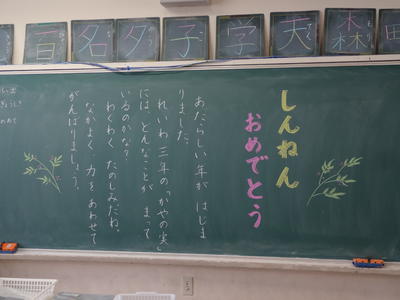 百
名
夕
子
学
天
森
しんねん
おめでとう
あたらしい年が はじま
りました。
れいわ三年の「かやの実」
には、どんなことが まって
いるのかな？
わくわく たのしみだね。
なかよく 力をあわせて
がんばりましょう。